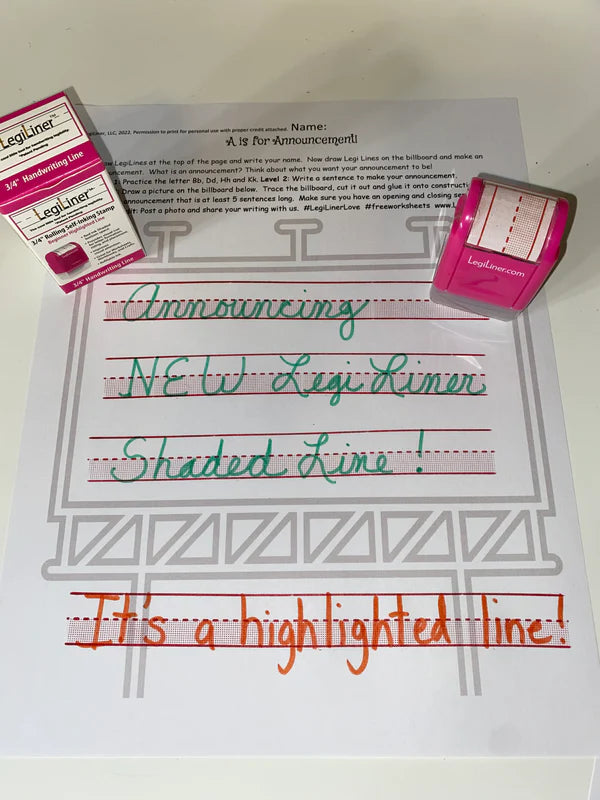 LegiLiner™
3/4" Handwriting Line
LegiLiner™
3/4" Rolling Self-Inking Stamp
Beginner Highlighted Line
3/4" Handwriting Line
LegiLiner, LLC, 2022. Permission to print for personal use with proper credit attached. Name:
A is for Announcement!
LegiLines at the top of the page and write your name. Now draw Legi Lines on the billboard and make an
What is an announcement? Think about what you want your announcement to be!
1: Practice the letter Bb, Dd, Hh and Kk. Level 2: Write a sentence to make your announcement.
Draw a picture on the billboard below. Trace the billboard, cut it out and glue it onto
announcement that is at least 5 sentences long. Make sure you have an opening and closing
Post a photo and share your writing with us. #LegiLinerLove #freeworksheets
LegiLiner.com
Announcing
NEW LegiLiner
Shaded Line!
It's a highlighted line!